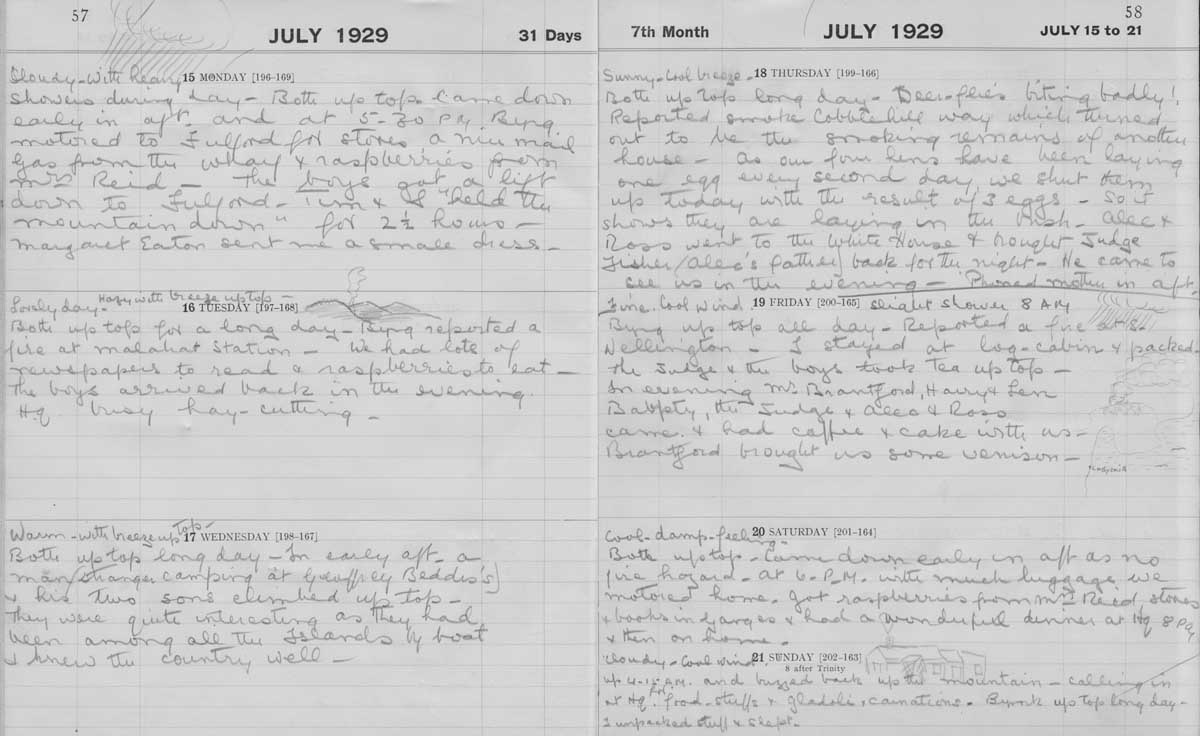 57
JULY 1929
31 Days
Cloudy - with heavy
15 MONDAY [196-169]
showers during day - Both up top. Came down
early in aft. and at 5-30 P.M. Byng
motored to Fulford for stores a nice mail
gas from the wharf & raspberries from
Mrs Reid - The boys got a lift
down to Fulford - Tim & I "held the
mountain down" for 2½ hours -
Margaret Eaton sent me a small dress -
Lovely day - Hazy with breeze up top -
16 TUESDAY [197-168]
Both up top for a long day - Byng reported a
fire at Malahat Station - We had lots of
newspapers to read & raspberries to eat -
The boys arrived back in the evening.
H.q. busy hay-cutting -
Warm - with breeze up top -
17 WEDNESDAY [198-167]
Both up top long day - In early aft. a
man (stranger camping at Geoffrey Beddis's)
& his two sons climbed up top -
They were quite interesting as they had
been among all the Islands by boat
& knew the country well -
7th Month
JULY 1929
58
JULY 15 to 21
Sunny - Cool breeze -
18 THURSDAY [199-166]
Both up top long day - Deer-flies biting badly!
Reported smoke Cobble Hill way which turned
out to be the smoking remains of another
house - as our four hens have been laying
one egg every second day, we shut them
up today with the result of 3 eggs - so it
shows they are laying in the bush - Alec &
Ross went to the White House & brought Judge
Fisher (Alec's father) back for the night - He came to
see us in the evening - Phoned mother in aft.
Fine. Cool wind.
19 FRIDAY [200-165]
slight shower 8 AM
Byng up top all day - Reported a fire at S.
Wellington - I stayed at log-cabin & packed
The Judge & the boys took Tea up top -
In evening Mr. Brantford, Harry & Len
the Judge & Alec & Ross
came & had coffee & cake with us -
Brantford brought us some venison -
Ladysmith
Cool - damp - feeling -
20 SATURDAY [201-164]
Both up top - Came down early in aft as no
fire hazard - at 6. P.M. with much luggage we
motored home. Got raspberries from Mrs Reid stores
& books in Ganges & had a wonderful dinner at Hq 8 PM
& then on home.
Cloudy - Cool wind
21 SUNDAY [202-163]
8 after Trinity
up 4-15 A.M. and buzzed back up the mountain - calling in
at Hq. for food-stuffs & gladoli, carnations. up top long day -
I unpacked stuff & slept -